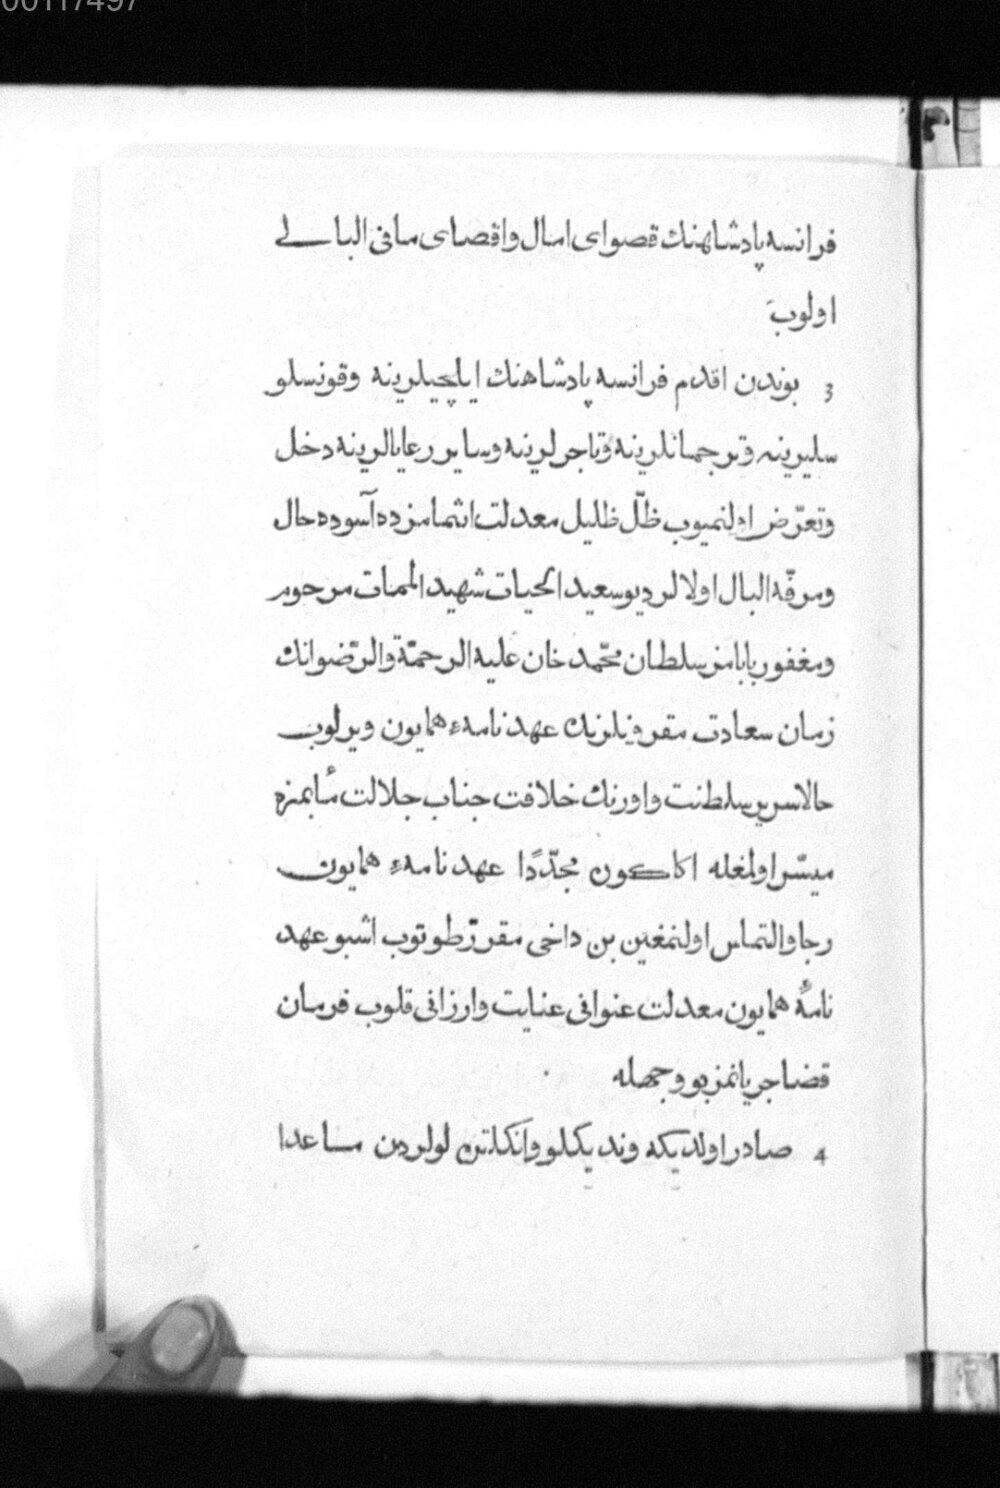 00117497
فرانسه پادشاهنك قصوای امال واقصای مافی البالی
اولوب
3 بوندن اقدم فرانسه پادشاهنك ایلچیلرینه وقونسلو
سلیرینه وترجمانلرینه وتاجرلرینه وسایر رعایالرینه دخل
وتعرّض اولنمیوب ظلّ ظلیل معدلت انتمامزده آسوده حال
ومرفّه البال اولالر دیو سعید الحیات شهید الممات مرحوم
ومغفور بابامز سلطان محمّد خان علیه الرحمة والرّضوانك
زمان سعادت مقرونلرنك عهد نامهء همایون ویرلوب
حالا سریر سلطنت واورنك خلافت جناب جلالت مأبمزه
میسّر اولمغله اكا كون مجدّدًا عهد نامهء همایون
رجا والتماس اولنمغین بن داخی مقرّر طوتوب اشبو عهد
نامهٔ همایون معدلت عنوانی عنایت وارزانی قلوب فرمان
قضا جریانمز بو وجهله
4 صادر اولدیكه وندیكلو وانكلتره لولردن مساعدا